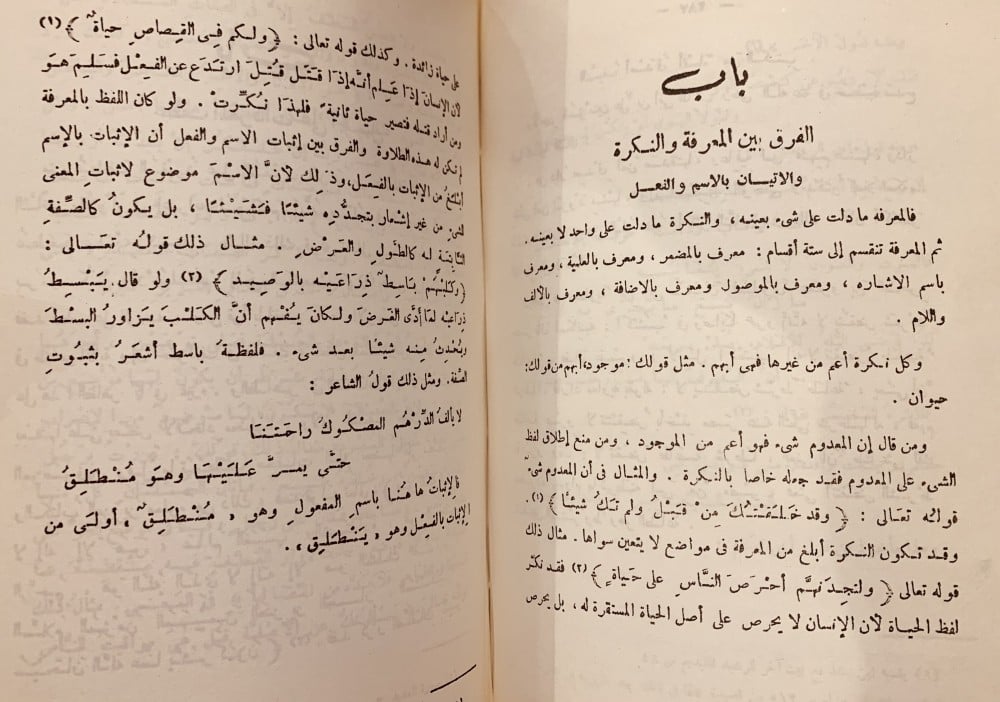 باب
الفرق بين المعرفة والنكرة
والاتيان بالاسم والفعل
فالمعرفه ما دلت على شىء بعينه ، والنكرة ما دلت على واحد لا بعينه .
ثم المعرفة تنقسم إلى ستة أقسام : معرف بالمضمر ، ومعرف بالعلمية ، ومعرف
باسم الاشاره ، ومعرف بالموصول ومعرف بالاضافة ، ومعرف بالألف
واللام .
وكل نكرة أعم من غيرها فهى أبهم . مثل قولك : موجود، أبهم من قولك :
حيوان .
ومن قال إن المعدوم شىء فهو أعم من الموجود ، ومن منع إطلاق لفظ
الشىء على المعدوم فقد جعله خاصا بالنكرة . والمثال فى أن المعدوم شىء
قولُه تعَالى : ﴿ وقد خَلَقْتُكَ مِنْ قَبْلُ ولم تَكُ شيئًا ﴾ (١) .
وقد تكون النكرة أبلغ من المعرفة فى مواضع لا يتعين سواها . مثال ذلك
قوله تعالى ﴿ ولتجِدَنهُم أحْرَصَ النَّاسِ على حَياةٍ ﴾ (٢) فقد نكّر
لفظ الحياة لأن الإنسان لا يحرص على أصل الحياة المستقرة له ، بل يحرص
على حياة زائدة . وكذلك قوله تعالى : ﴿ ولكم فِى القِصاصِ حياةٌ ﴾ (١)
لأن الإنسانَ إذا عَلِم أنه إذا قَتَل قُتِلَ ارتدَعَ عن الفِعْل فسَلِمَ هوَ
ومن أراد قتله فتصير حياة ثانية ً فلهذا نُكِّرتْ . ولو كان اللفظ بالمعرفة
لم تكن له هذه الطلاوة والفرق بين إثبات الاسم والفعل أن الإثبات بالإسم
أبلغُ من الإثبات بالفِعل، وذلِك لأنَّ الاسْمَ موضوع لاثباتِ المعنى
لشىءٍ من غير إشعار بتجدُّدِه شيْئًا فشيْئًا ، بل يكونُ كالصِّفةِ
الثابِتةِ له كالطُّولِ والعَرْضِ . مثال ذلك قولُه تعَالى :
﴿ وَكلْبُهُمْ بَاسِطٌ ذِرَاعَيْه بالوَصِيدِ ﴾ (٢) ولو قال يَبْسِطُ
ذِراعَيْه لمَا أدَّى الغرَضَ ولكانَ يُفْهم أنَّ الكَلْبَ يُزاوِرُ البسْطَ
ويُحْدِثُ مِنه شيْئًا بعد شىء . فلفظةُ باسط أشعَرُ بثبُوتِ
الصِّفة . ومثل ذلك قولُ الشاعر :
لا يألفُ الدِّرْهمُ المصْكُوكُ راحَتَنَا
حتَّى يمرَّ عَلَيْهَا وهوَ مُنْطَلِقُ
فالإثباتُ هاهُنا باسمِ المفعولِ وهو « مُنْطَلِقٌ » أولَى من
الإثباتِ بالفِعْلِ وهو « يَنْطَلِق » .